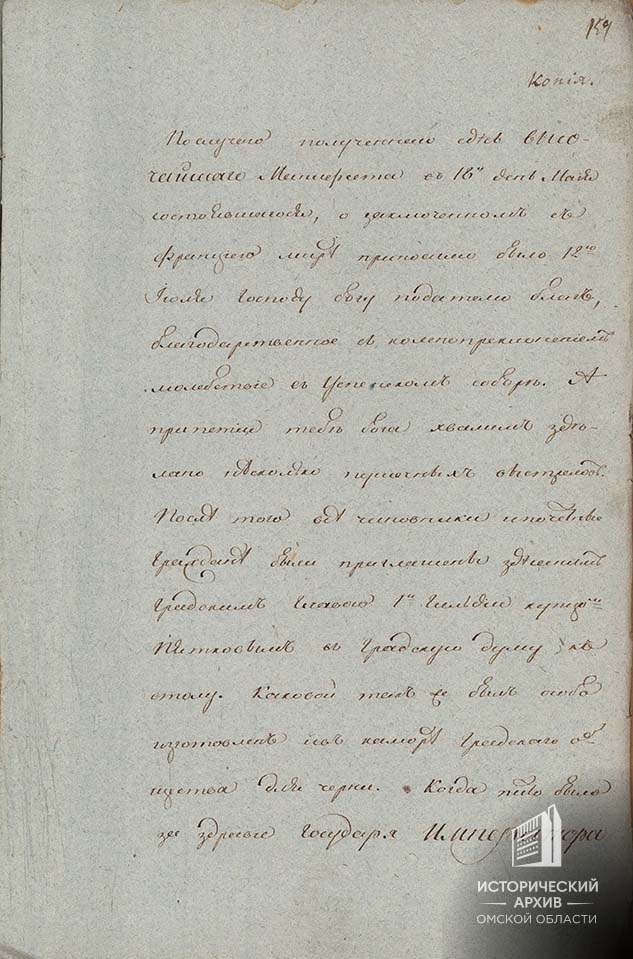 159
Копія.
Послучаю полученнаго здѣсь ВЫСО-
ЧАЙШАГО Манифеста въ 18й день Маія
состоявшагося, о заключенномъ съ
Францією мирѣ приносимо было 12го
Іюля Господу богу подателю благъ,
благодарственное съ коленопреклоненіемъ
молебствіе въ Успенскомъ соборѣ. А
припетіи тебѣ бога хвалимъ здѣ-
лано нѣсколько пушечныхъ выстреловъ.
Послѣ того всѣ чиновники ипочетные
Граждане были приглашены здѣшнимъ
Градскимъ Главою 1й Гильдіи купцомъ
Пятковымъ въ Градскую думу къ
столу. Каковой такъ же былъ особо
изготовленъ и въ камерѣ Градскаго об
щества для черни. Когда пито было
за здравіе Государя ИМПЕРАТОРА
ИСТОРИЧЕСКИЙ
АРХИВ
ОМСКОЙ ОБЛАСТИ